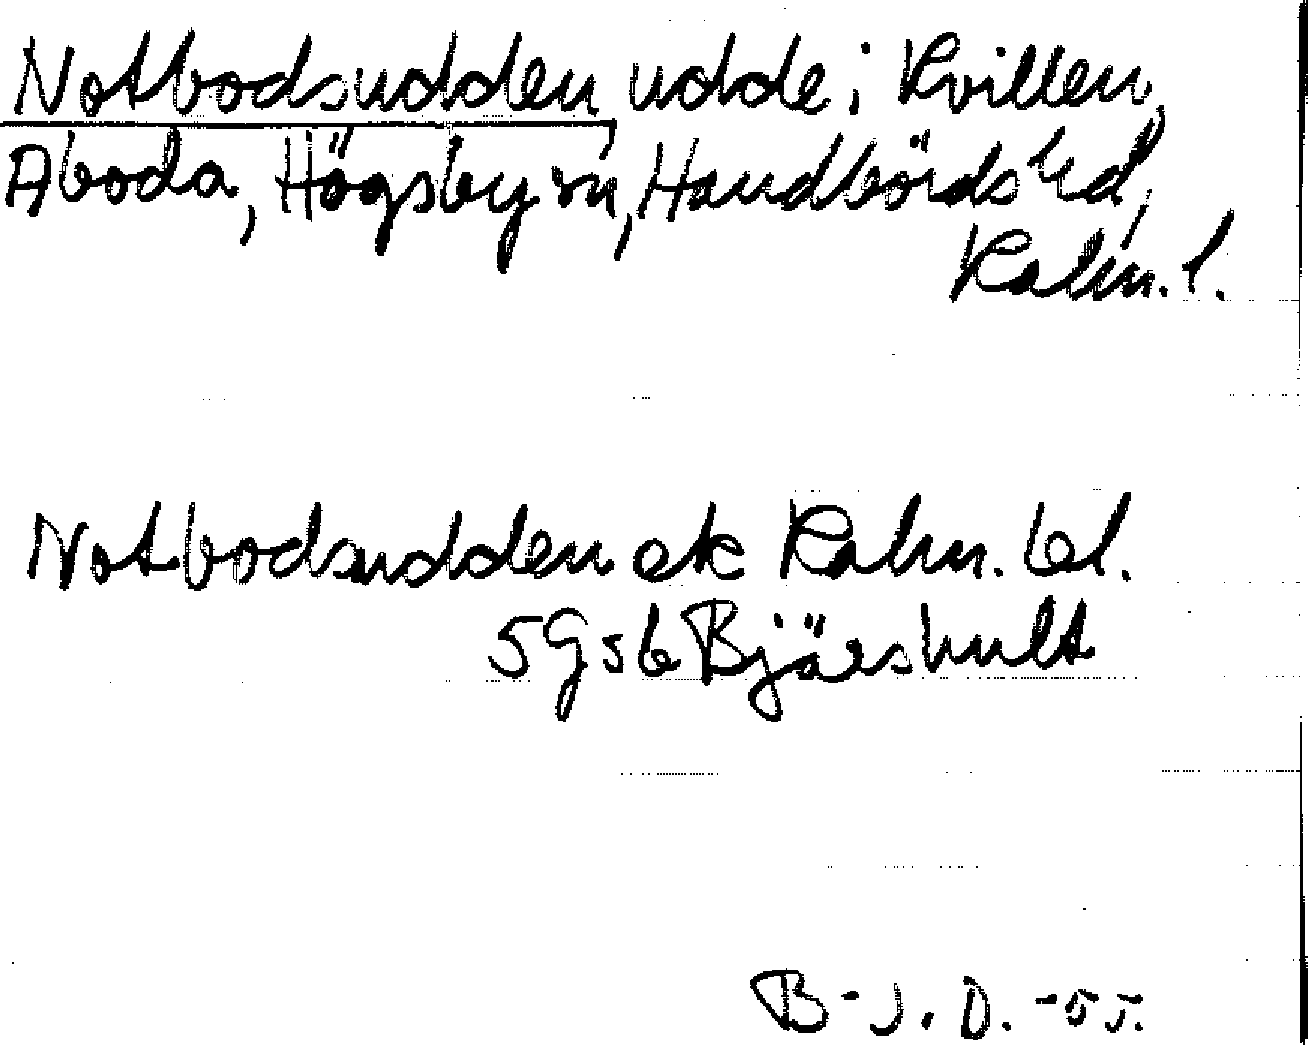 Notbodsudden, udde i Kvillen,
Aboda, Högsby sn, Handbörds hd,
Kalm. l.
Notbodsudden ek Kalm. bl.
5G5b Bjäreshult
B-J. D. -55.